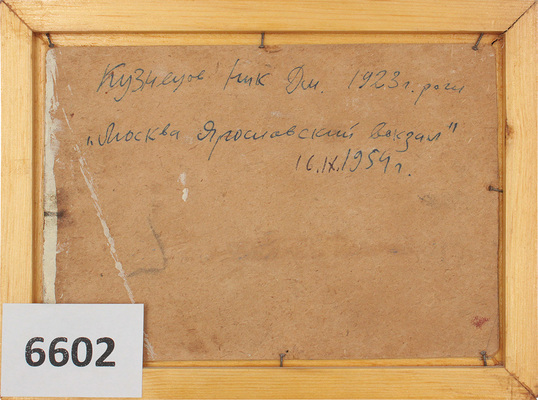 Кузнецов Ник Дм. 1923 г. рож
„Москва Ярославский вокзал"
16.IX.1954 г.
6602